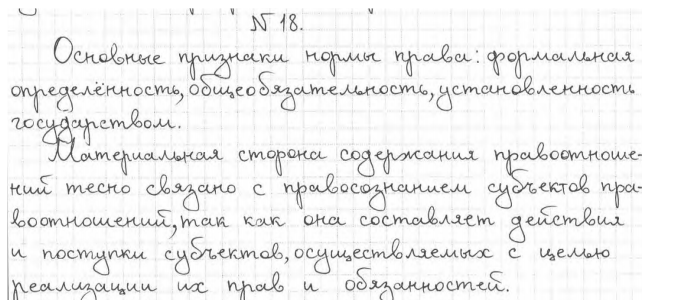 N 18.
Основные признаки нормы права: формальная
определённость, общеобязательность, установленность
государством.
Материальная сторона содержания правоотноше-
ний тесно связано с правосознанием субъектов пра-
воотношений, так как она составляет действия
и поступки субъектов, осуществляемых с целью
реализации их прав и обязанностей.